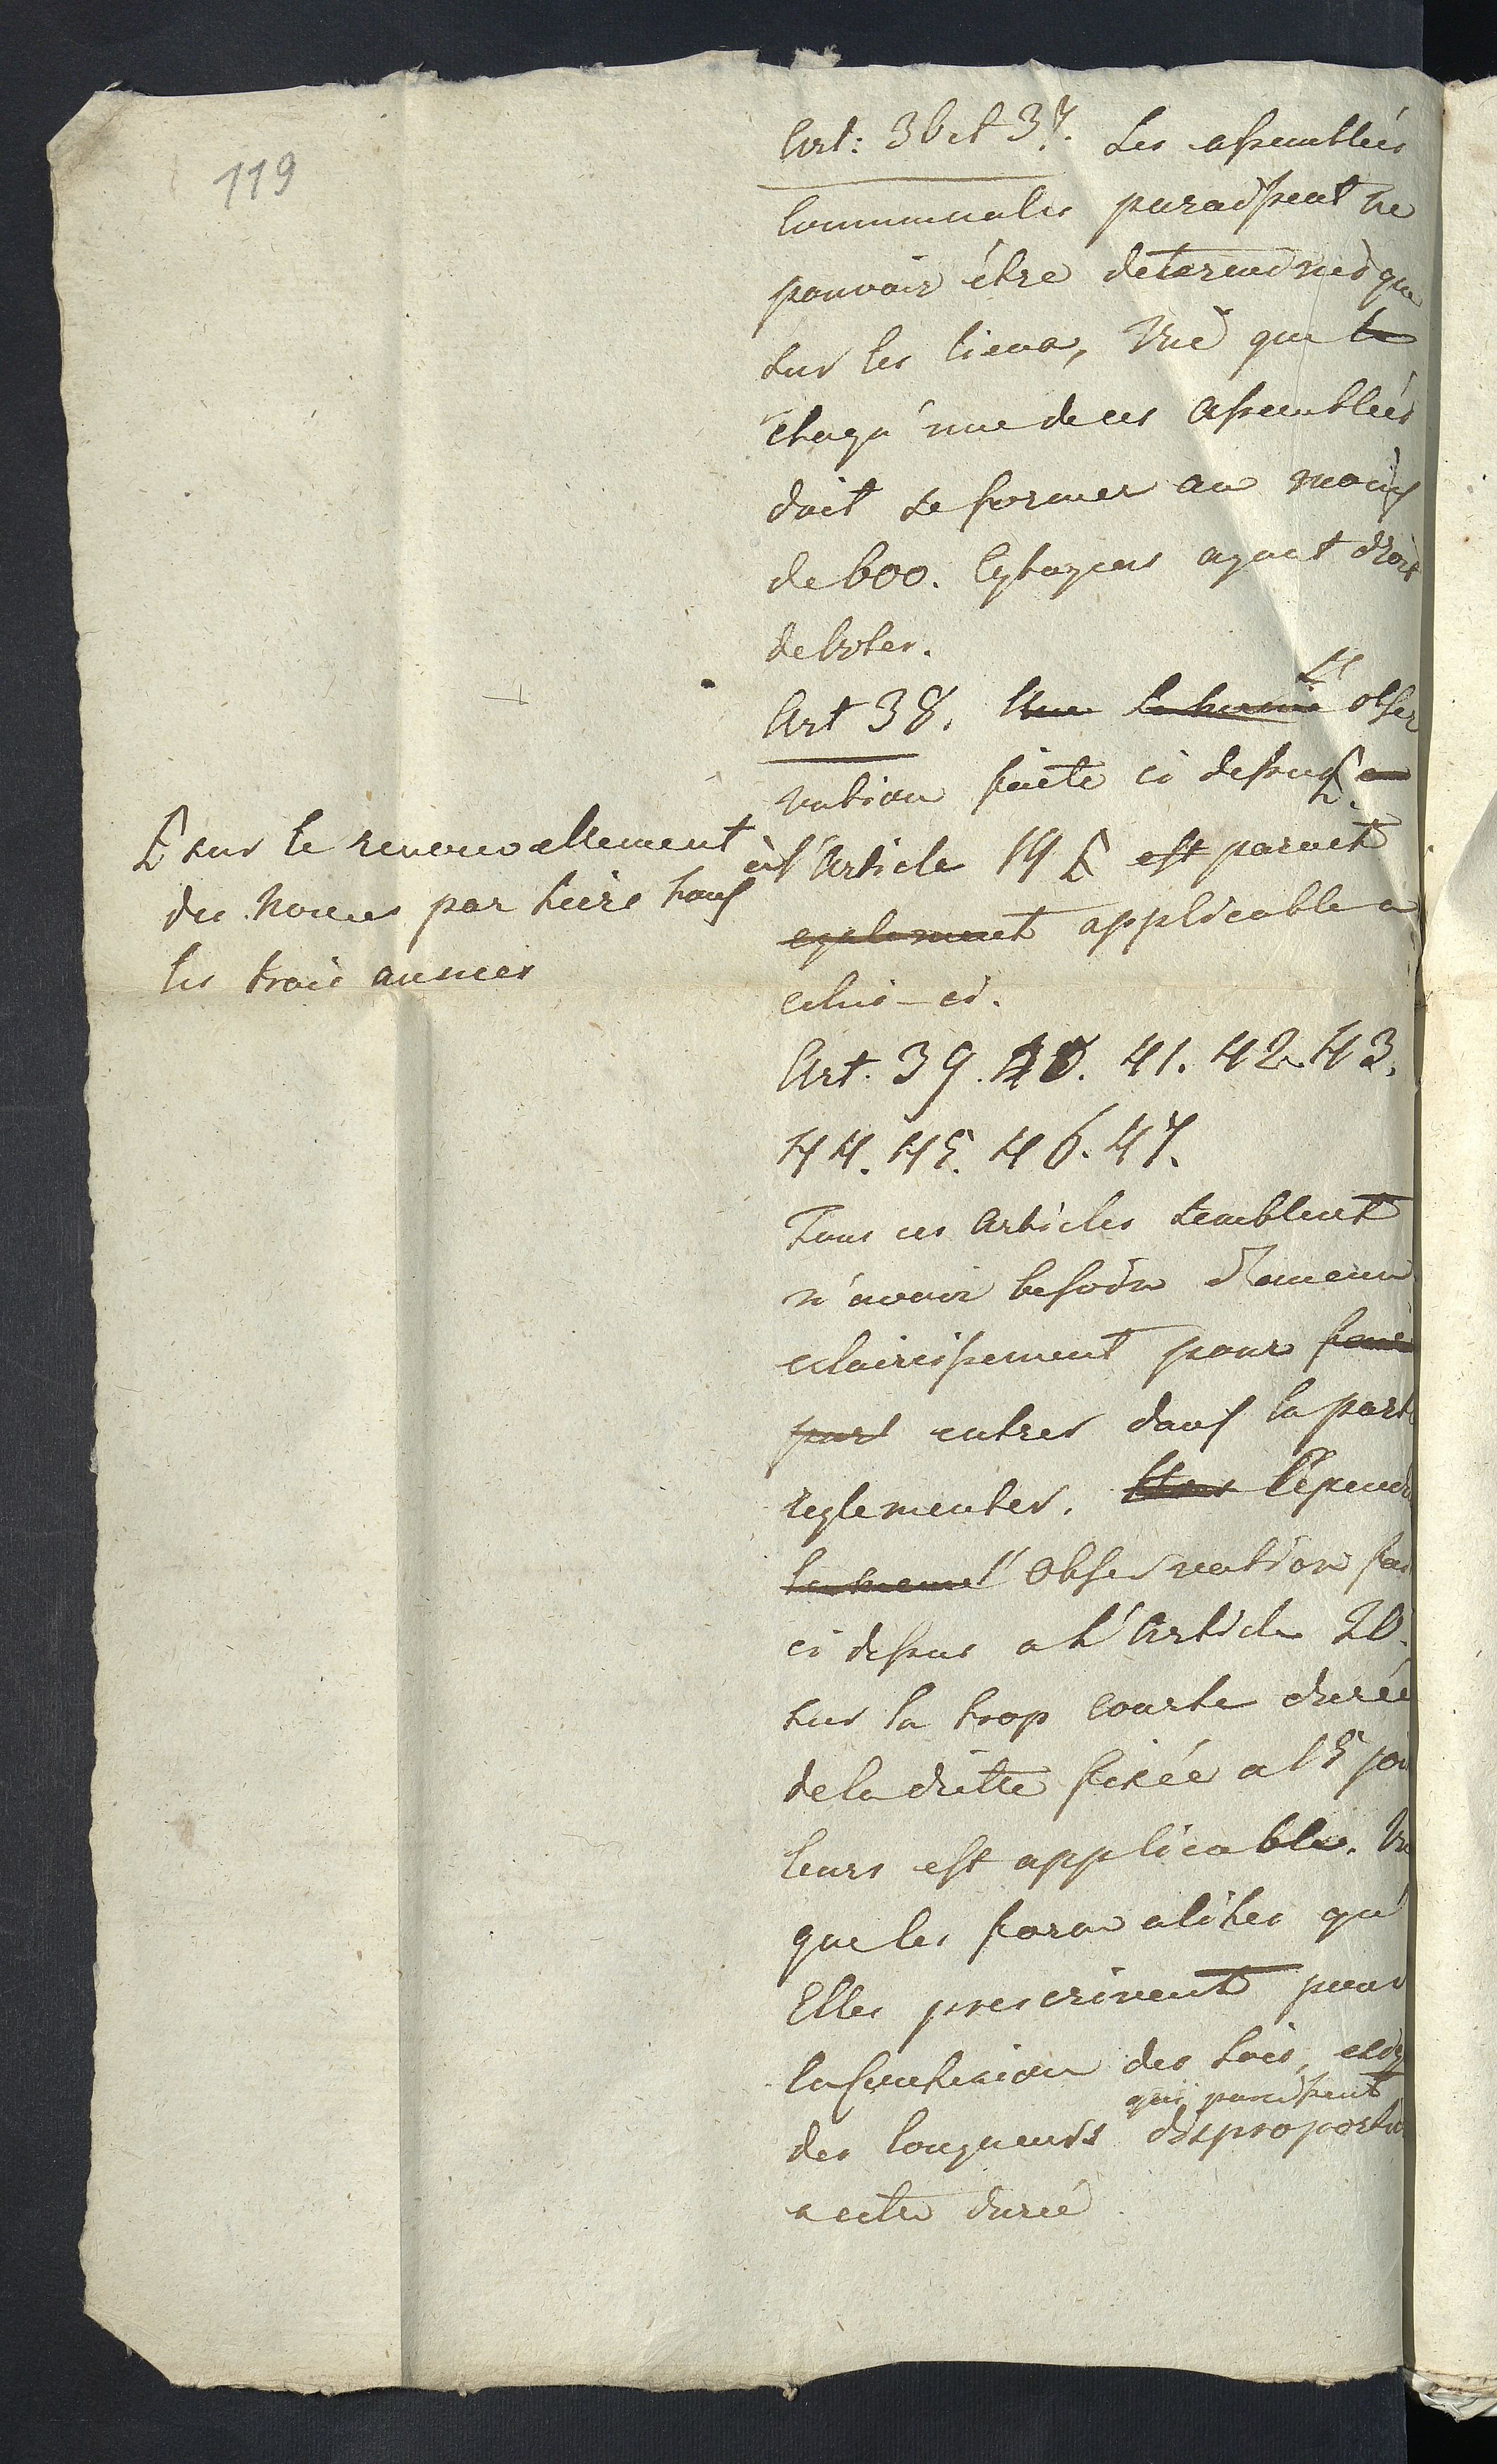 119
Art: 36 et 37. Les assembleés
Communales paraissent ne
pouvoir être determinés que
sur les lieux, Vue que le
chaqu'une de ces Assembleés
doit se former au moins
de 600. Cytoyens ayant droit
de Voter.
Art 38. Une la meme L' obser
vation faite ci dessus
à l'Article 19 est parait
egalement applicable a
celui-ci.
sur le renouvellement
des Nonces par tiere tous
les trois années
Art. 39. 40. 41. 42. 43.
44. 45. 46. 47.
Tous ces Articles semblent
n'avoir besoin d'aucun
eclaircissement pour faire
part entrer dans la parti
reglementer. Cepend
la meme l'observation fai
ci dessus a l'Article 20.
sur la trop courte durée
de la diette fixée a 15 jou
leurs est applicable. Vu
que les formalites qu'
Elles prescrivent pour
la confexion des Lois,
des longueurs qui paraissent disproportio
a cette durée